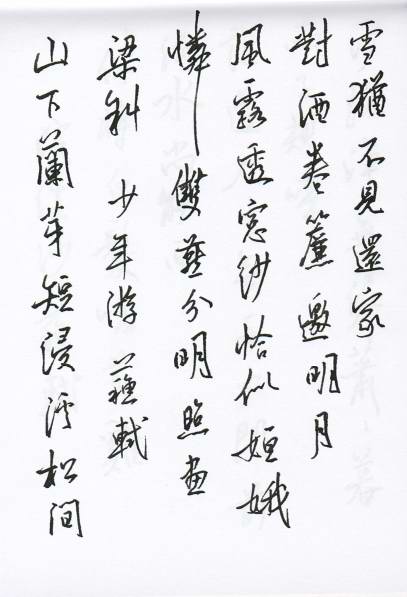 雪猶不見還家
對酒卷簾邀明月
風露透窓紗恰似姮娥
憐雙燕分明照畫
梁斜 少年游 蘇軾
山下蘭芽短浸溪松間